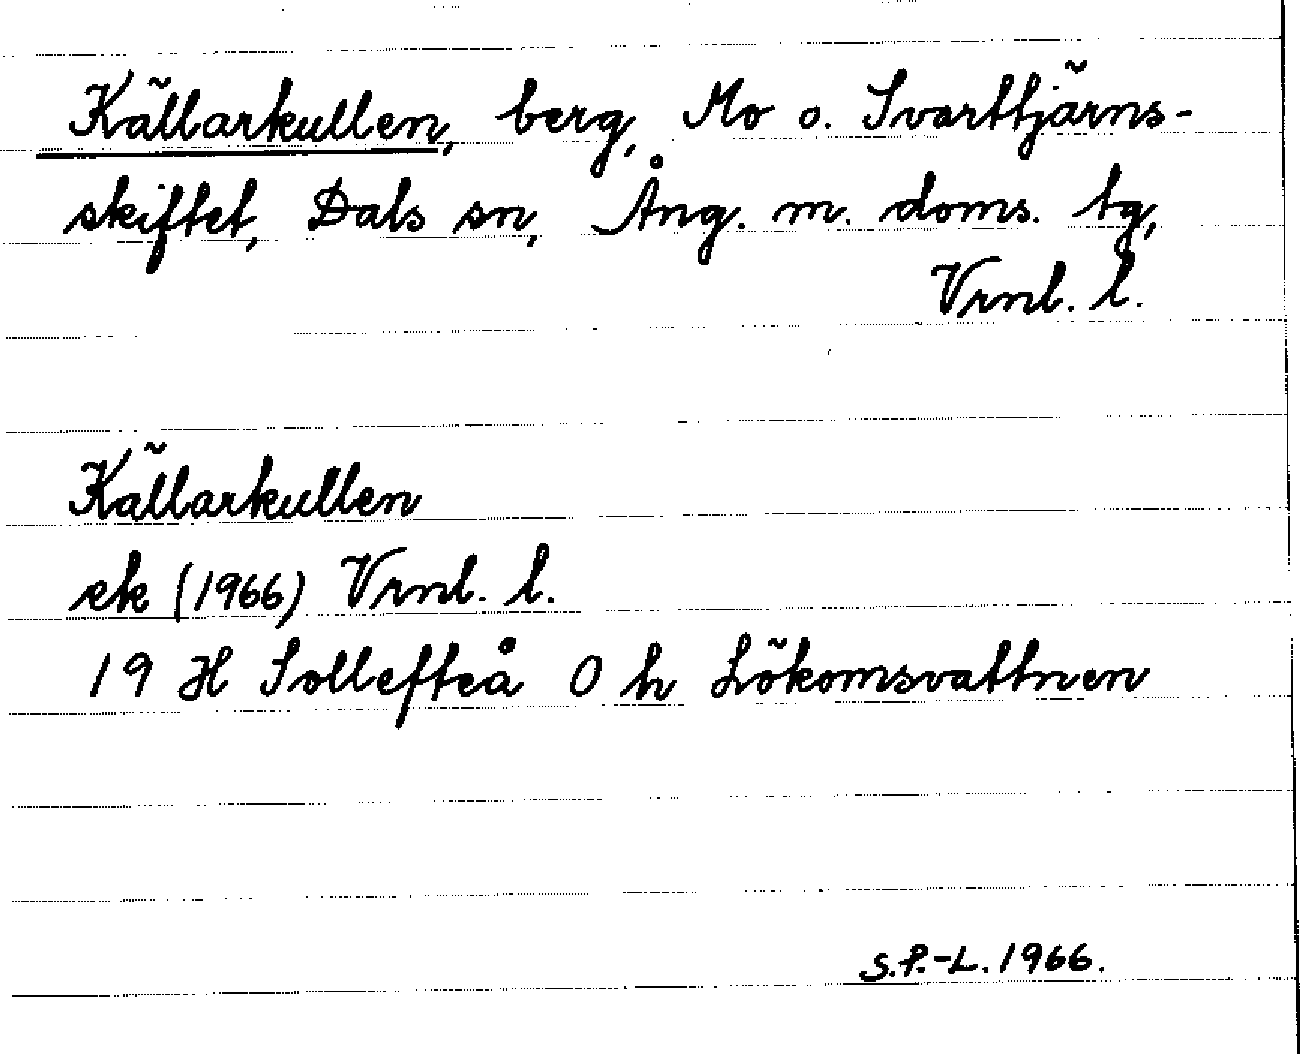 Källarkullen, berg, Mo o. Svarttjärns-
skiftet, Dals sn, Ång. m. doms. tg,
Vrnl. l.
Källarkullen
ek (1966) Vrnl. l.
19 H Sollefteå 0 h Lökomsvattnen
S.P.-L. 1966.